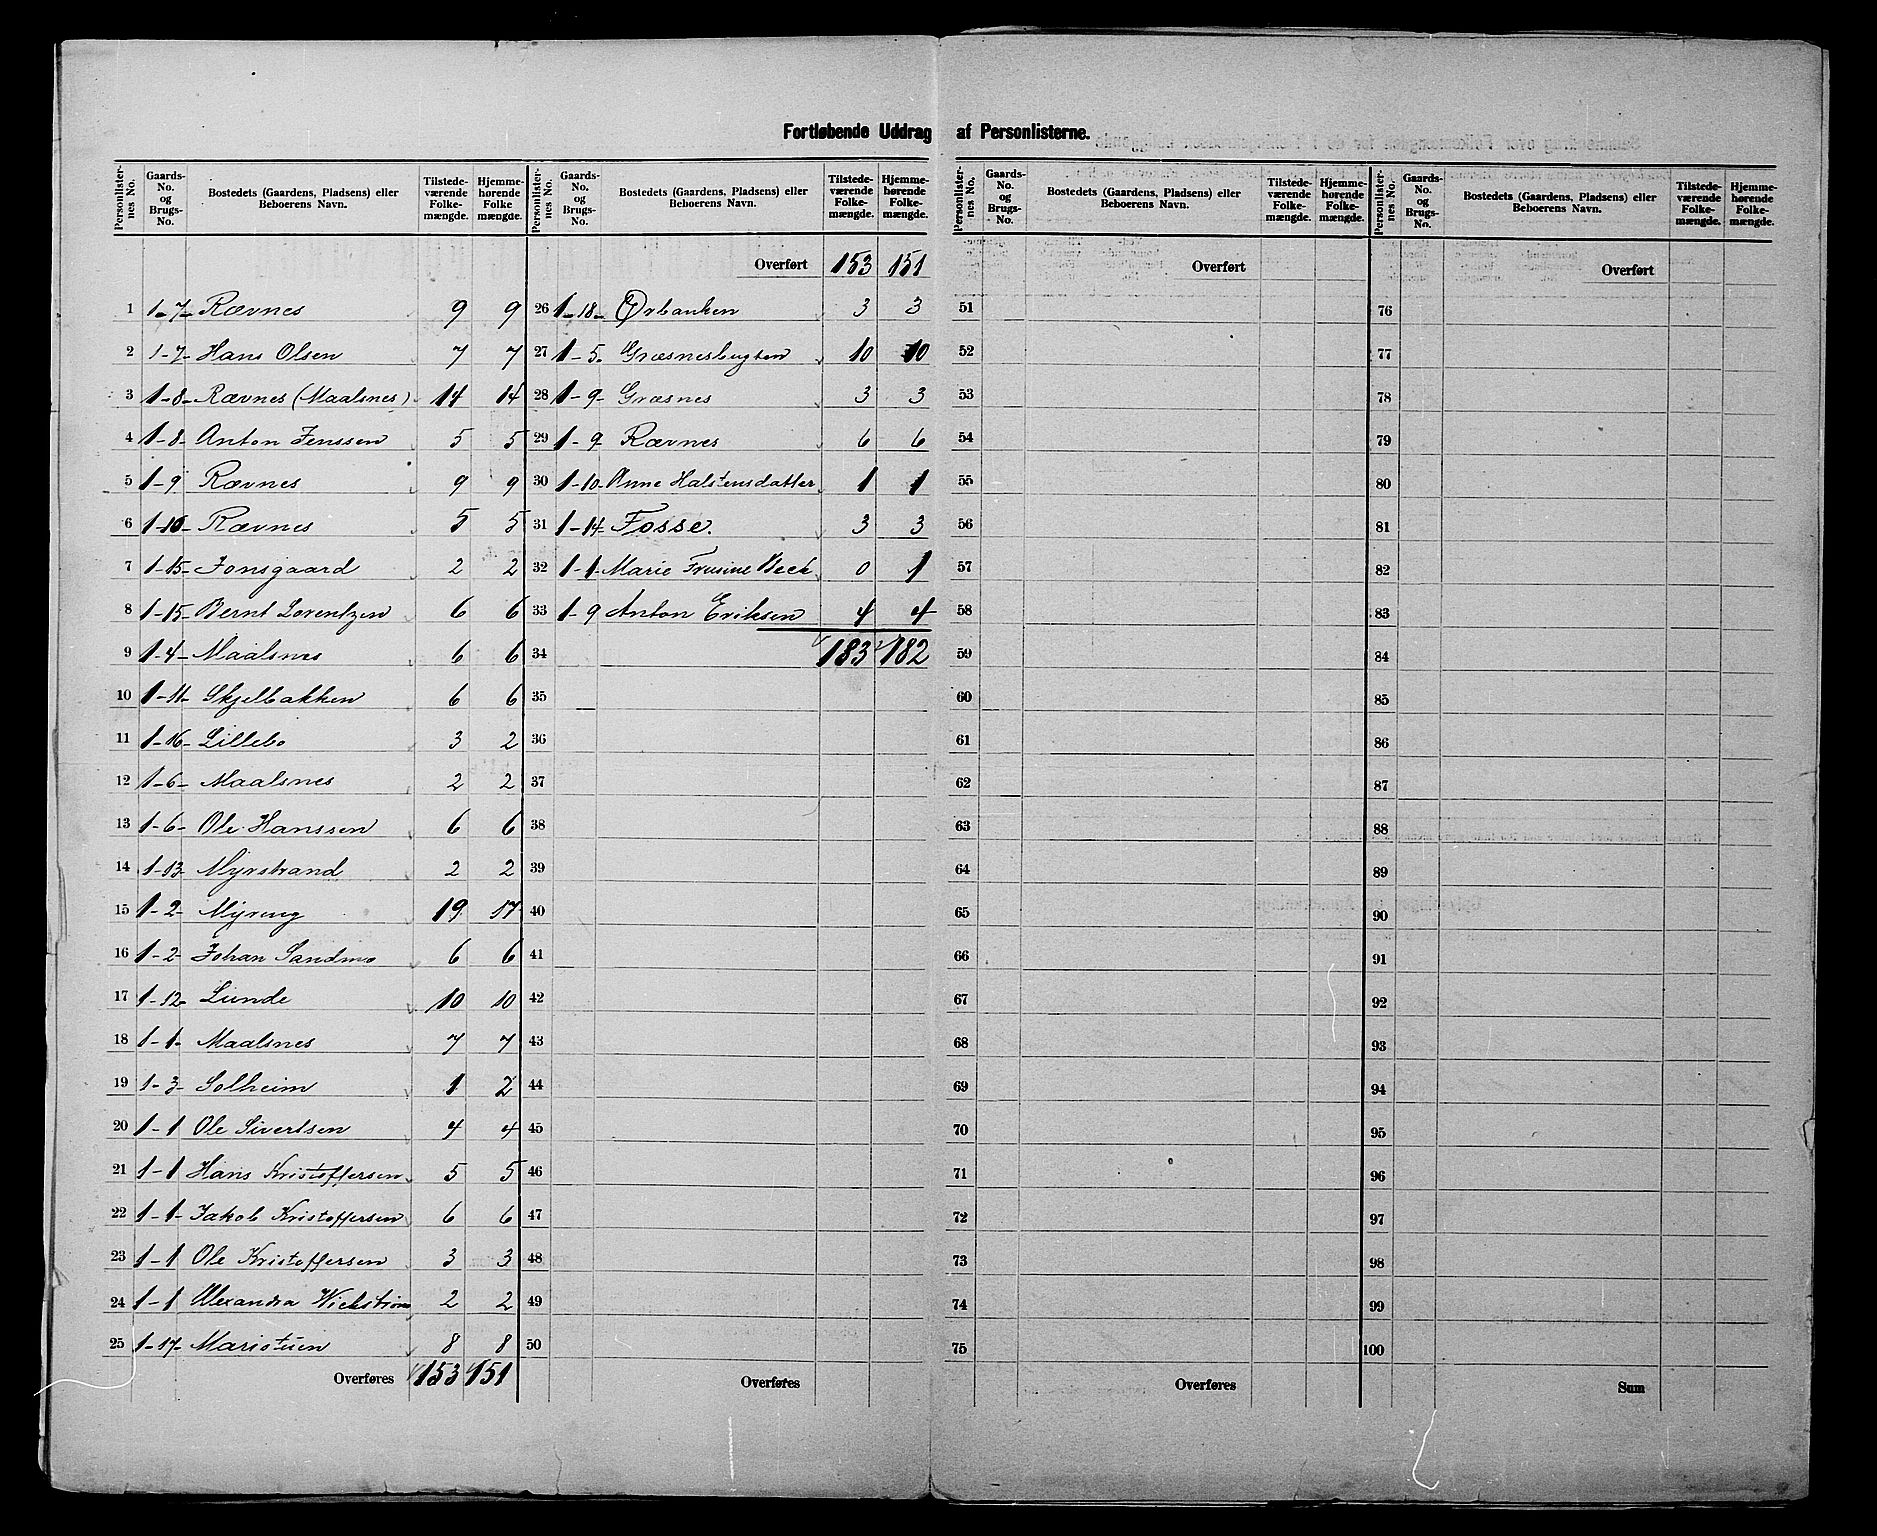 Fortløbende Uddrag af Personlisterne.
Personlister- nes No. | Gaards- No. og Brugs- No. | Bostedets (Gaardens, Pladsens) eller Beboerens Navn. | Tilstede- værende Folke- mængde. | Hjemme- hørende Folke mængde.
1 1-7- Rævnes 9 9
2 1-7- Hans Olsen 7 7
3 1-8- Rævnes (Maalsnes) 14 14
4 1-8- Anton Jenssen 5 5
5 1-9 Rævnes 9 9
6 1-10- Rævnes 5 5
7 1-15- Jonsgaard 2 2
8 1-15- Bernt Lorentzen 6 6
9 1-4- Maalsnes 6 6
10 1-11- Skjelbakken 6 6
11 1-16- Lillebo 3 2
12 1-6- Maalsnes 2 2
13 1-6- Ole Hanssen 6 6
14 1-13- Myrstrand 2 2
15 1-2- Myreng 19 17
16 1-2- Johan Sandmo 6 6
17 1-12- Lunde 10 10
18 1-1- Maalsnes 7 7
19 1-3- Solheim 1 2
20 1-1 Ole Sivertsen 4 4
21 1-1 Hans Kristoffersen 5 5
22 1-1- Jakob Kristoffersen 6 6
23 1-1 Ole Kristoffersen 3 3
24 1-1 Alexandra Wickstrøm 2 2
25 1-17- Maristuen 8 8
Overføres 153 151
Personlister- nes No. | Gaards- No. og Brugs- No. | Bostedets (Gaardens, Pladsens) eller Beboerens Navn. | Tilstede- værende Folke- mængde. | Hjemme- hørende Folke- mængde.
Overført 153 151
26 1-18- Ørbanken 3 3
27 1-5. Græsnesbugten 10 10
28 1-9- Græsnes 3 3
29 1-9 Rævnes 6 6
30 1-10- Anne Halstensdatter 1 1
31 1-14- Fosse. 3 3
32 1-1- Marie Frusine Beck 0 1
33 1-9 Anton Eriksen 4 4
34 183 182
35
36
37
38
39
40
41
42
43
44
45
46
47
48
49
50
Overføres
Personlister- nes No. | Gaards- No. og Brugs- No. | Bostedets (Gaardens, Pladsens) eller Beboerens Navn. | Tilstede- værende Folke- mængde. | Hjemme- hørende Folke- mængde.
Overført
51
52
53
54
55
56
57
58
59
60
61
62
63
64
65
66
67
68
69
70
71
72
73
74
75
Overføres
Personlister- nes No. | Gaards- No. og Brugs- No. | Bostedets (Gaardens, Pladsens) eller Beboerens Navn. | Tilstede- værende Folke- mængde. | Hjemme- hørende Folke- mængde.
Overført
76
77
78
79
80
81
82
83
84
85
86
87
88
89
90
91
92
93
94
95
96
97
98
99
100
Sum